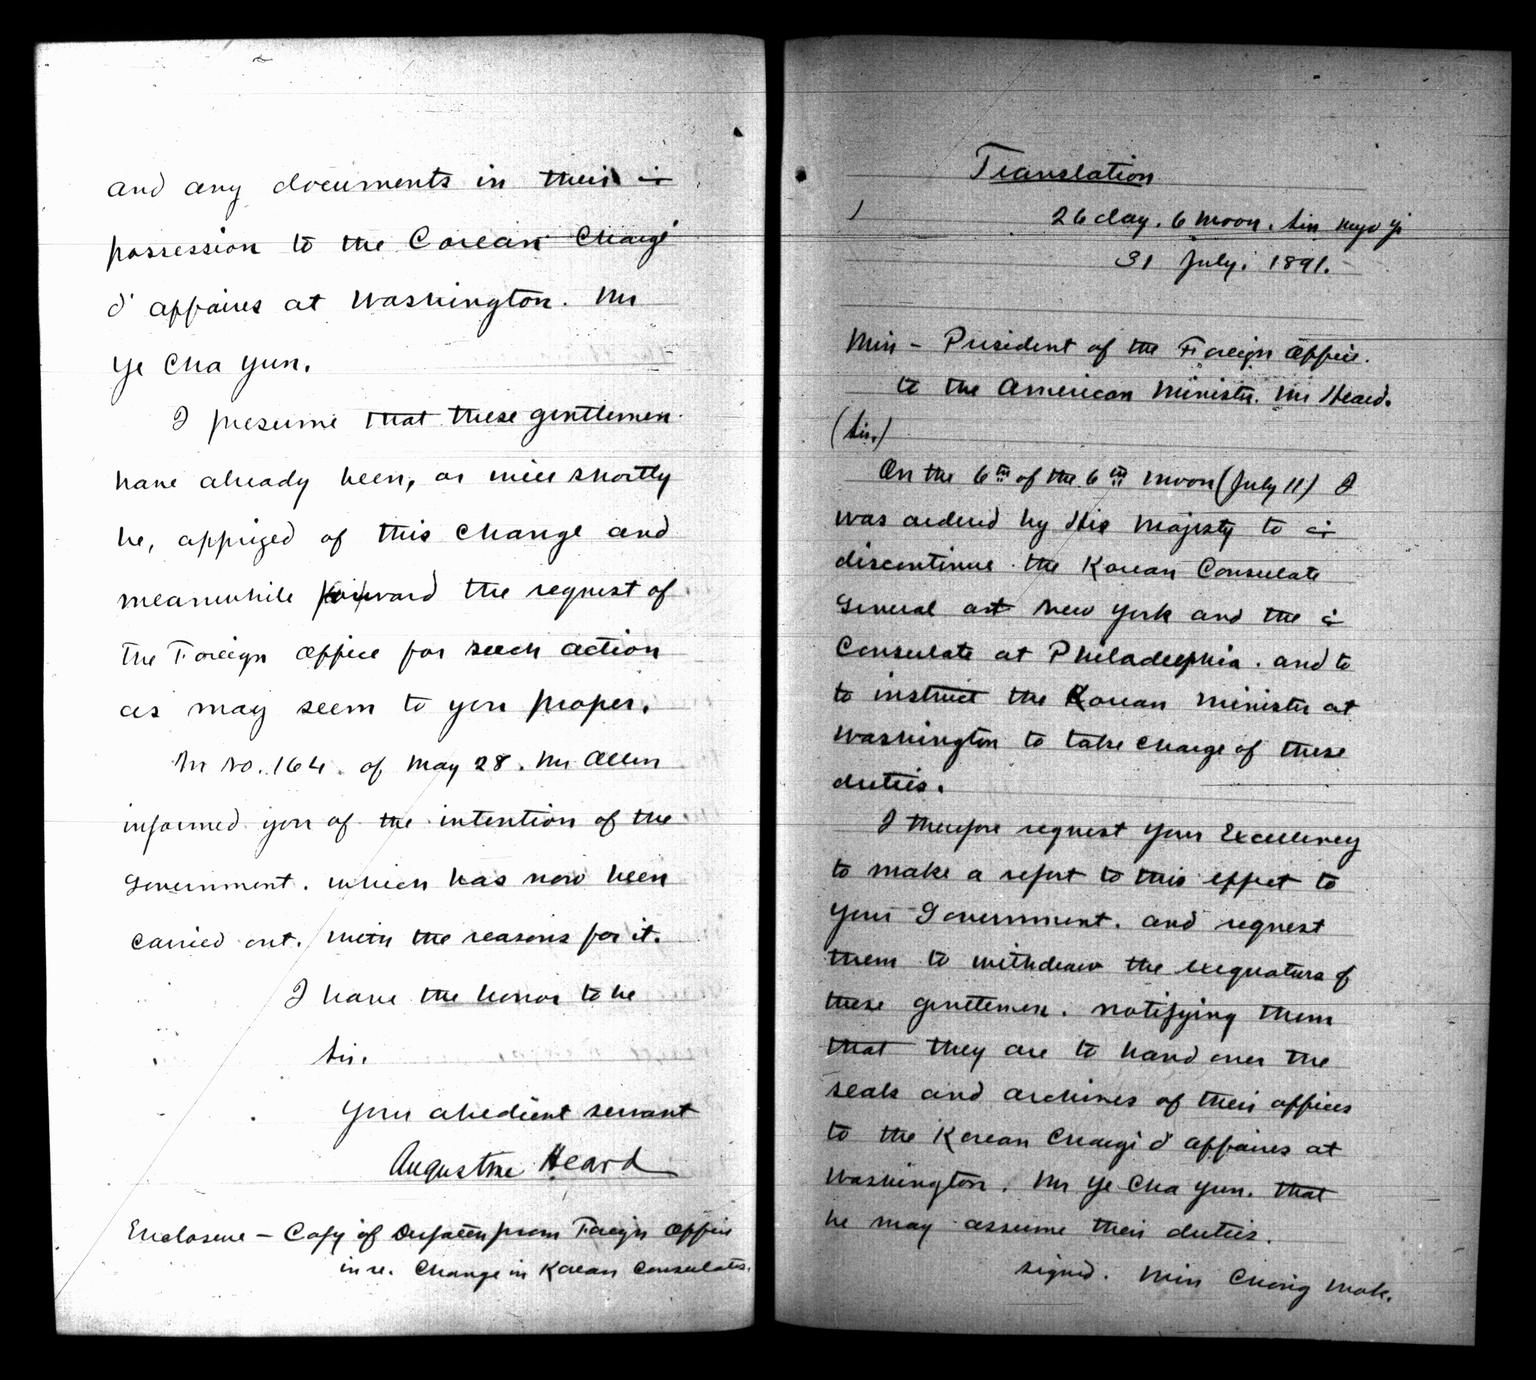 and any documents in their
possession to the Corean Chargé
d'affaires at Washington. Mr
Ye Cha Yun.
I presume that these gentlemen
have already been, or will shortly
be, apprized of this change and
meanwhile forward the request of
the Foreign Office for such action
as may seem to you proper.
In No. 164. of May 28. Mr Allen
informed you of the intention of the
Government. which has now been
carried out. with the reasons for it.
I have the honor to be
Sir.
Your obedient servant
Augustine Heard
Enclosure - Copy of Despatch from Foreign Office
in re. Change in Korean Consulates.
Translation
26 day. 6 Moon. Sin Myo
31 July. 1891.
Min - President of the Foreign Office.
to the American Minister. Mr Heard.
(Sir.)
On the 6th of the 6th Moon (July 11) I
was ordered by His Majesty to
discontinue the Korean Consulate
General at New York and the
Consulate at Philadelphia. and to
to instruct the Korean Minister at
Washington to take charge of these
duties.
I therefore request Your Excellency
to make a report to this effect to
Your Government. and request
them to withdraw the exequaturs of
these gentlemen. notifying them
that they are to hand over the
seals and archives of their offices
to the Korean Chargé d'affaires at
Washington. Mr Ye Cha Yun. that
he may assume their duties.
signed. Min Chong Mok.